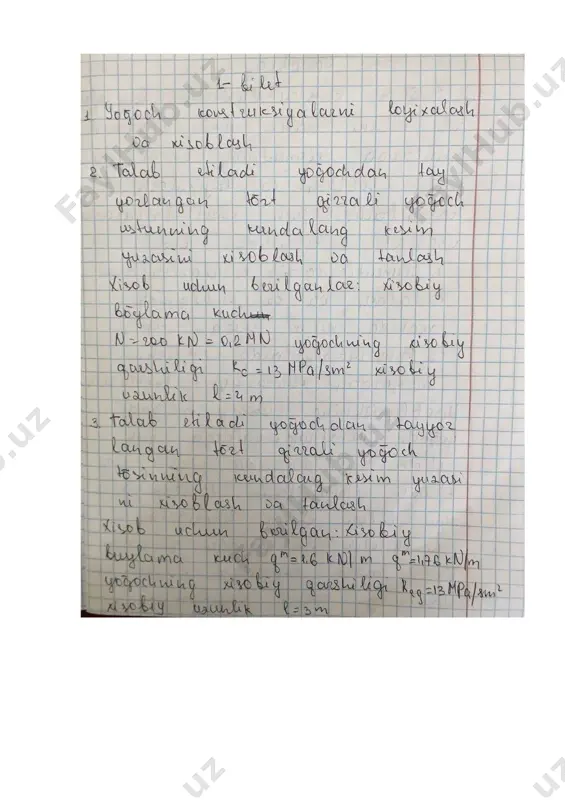 1- bilet
1 Yog'och konstruksiyalarni loyixalash
va xisoblash
2. Talab etiladi yog'ochdan tay
yorlangan to'rt qirrali yog'och
ustunning kundalang kesim
yuzasini xisoblash va tanlash
Xisob uchun berilganlar: xisobiy
bo'ylama kuch
N=200 kN=0,2MN yog'ochning xisobiy
qarshiligi Rc=13 MPa/sm² xisobiy
uzunlik l=4 m
3. Talab etiladi yog'ochdan tayyor
langan to'rt qirrali yog'och
to'sinning kundalang kesim yuzasi
ni xisoblash va tanlash
Xisob uchun berilgan: Xisobiy
buylama kuch qⁿ=1.6 kN/m qᵐ=1,76 kN/m
yog'ochning xisobiy qarshiligi Reg=13 MPa/sm²
xisobiy uzunlik l=3m
FaylHub.uz
FaylHub.uz
FaylHub.uz